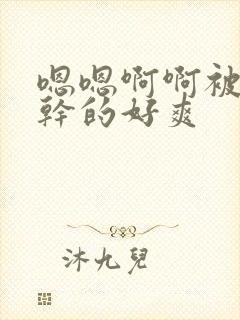 嗯嗯啊啊被
幹的好爽
沐九兒